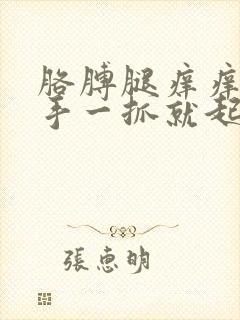 胳膊腿痒痒
手一抓就起
張惠明